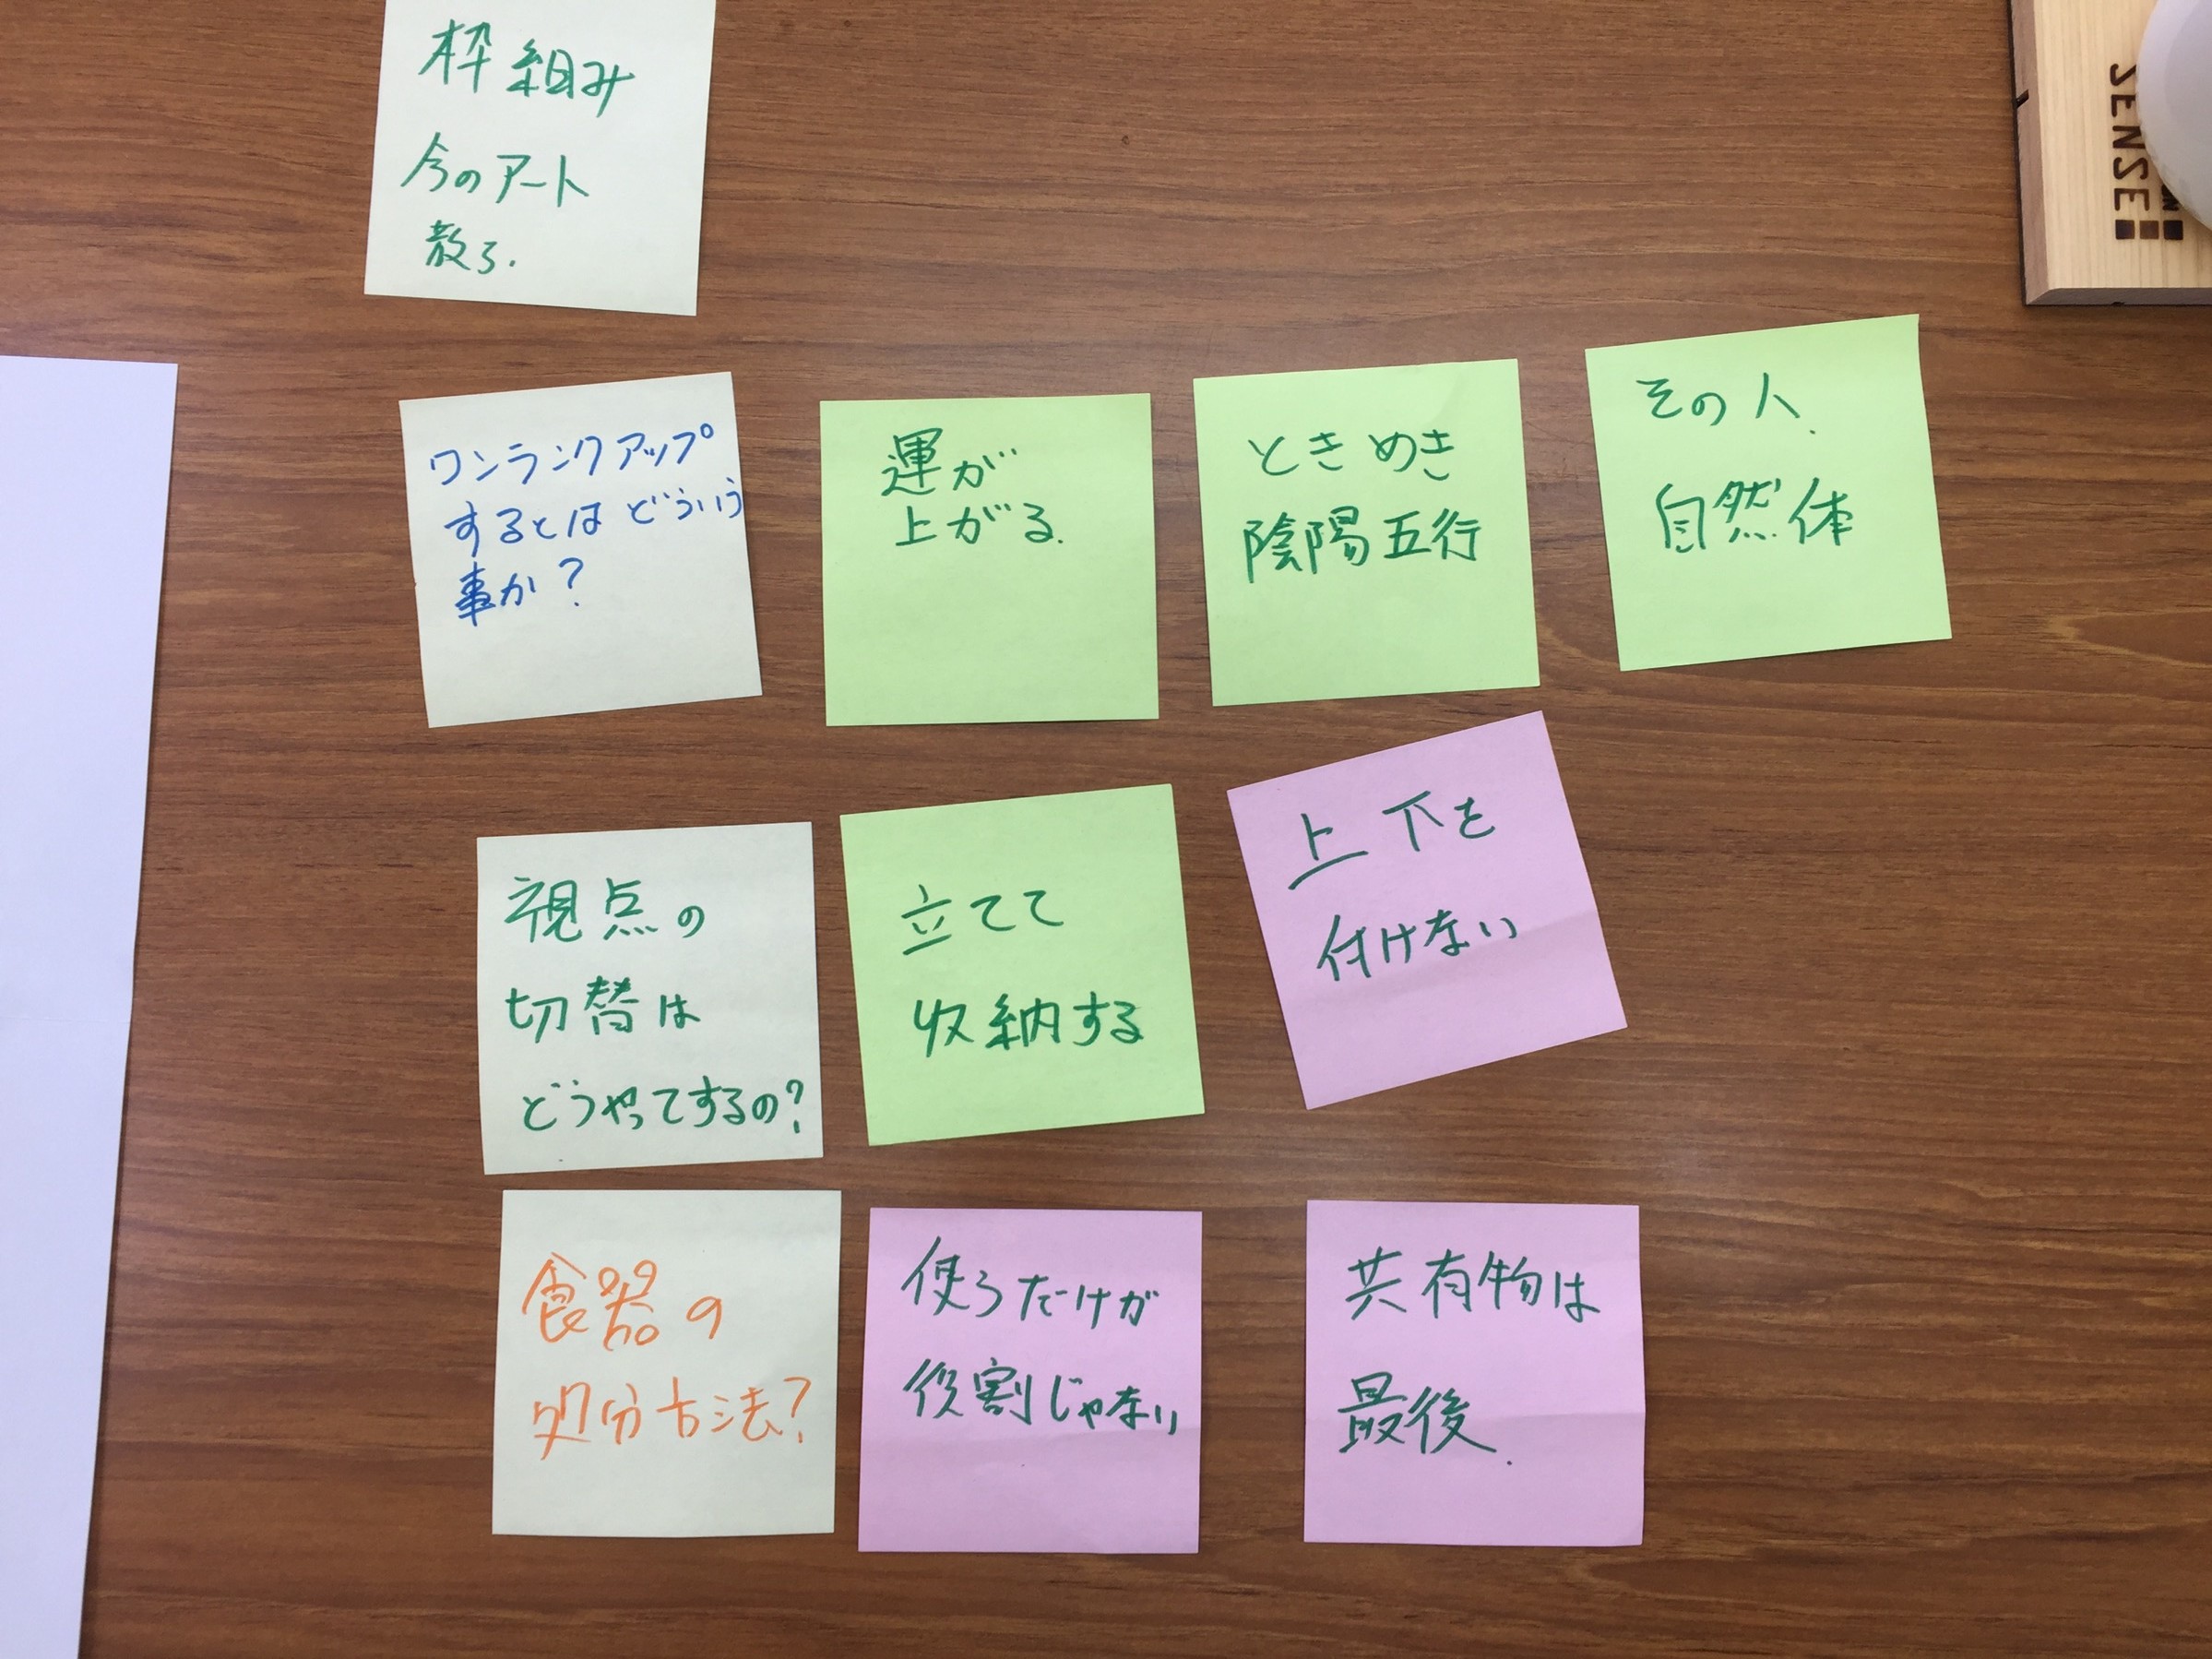 枠組み
今のアート
散る.
ワンランクアップ
するとは どういう
事か?
運が
上がる.
ときめき
陰陽五行
その人.
自然体
視点の
切替は
どうやってするの?
立てて
収納する
上下を
付けない
食器の
処分方法?
使うだけが
役割じゃない
共有物は
最後.
SENSE